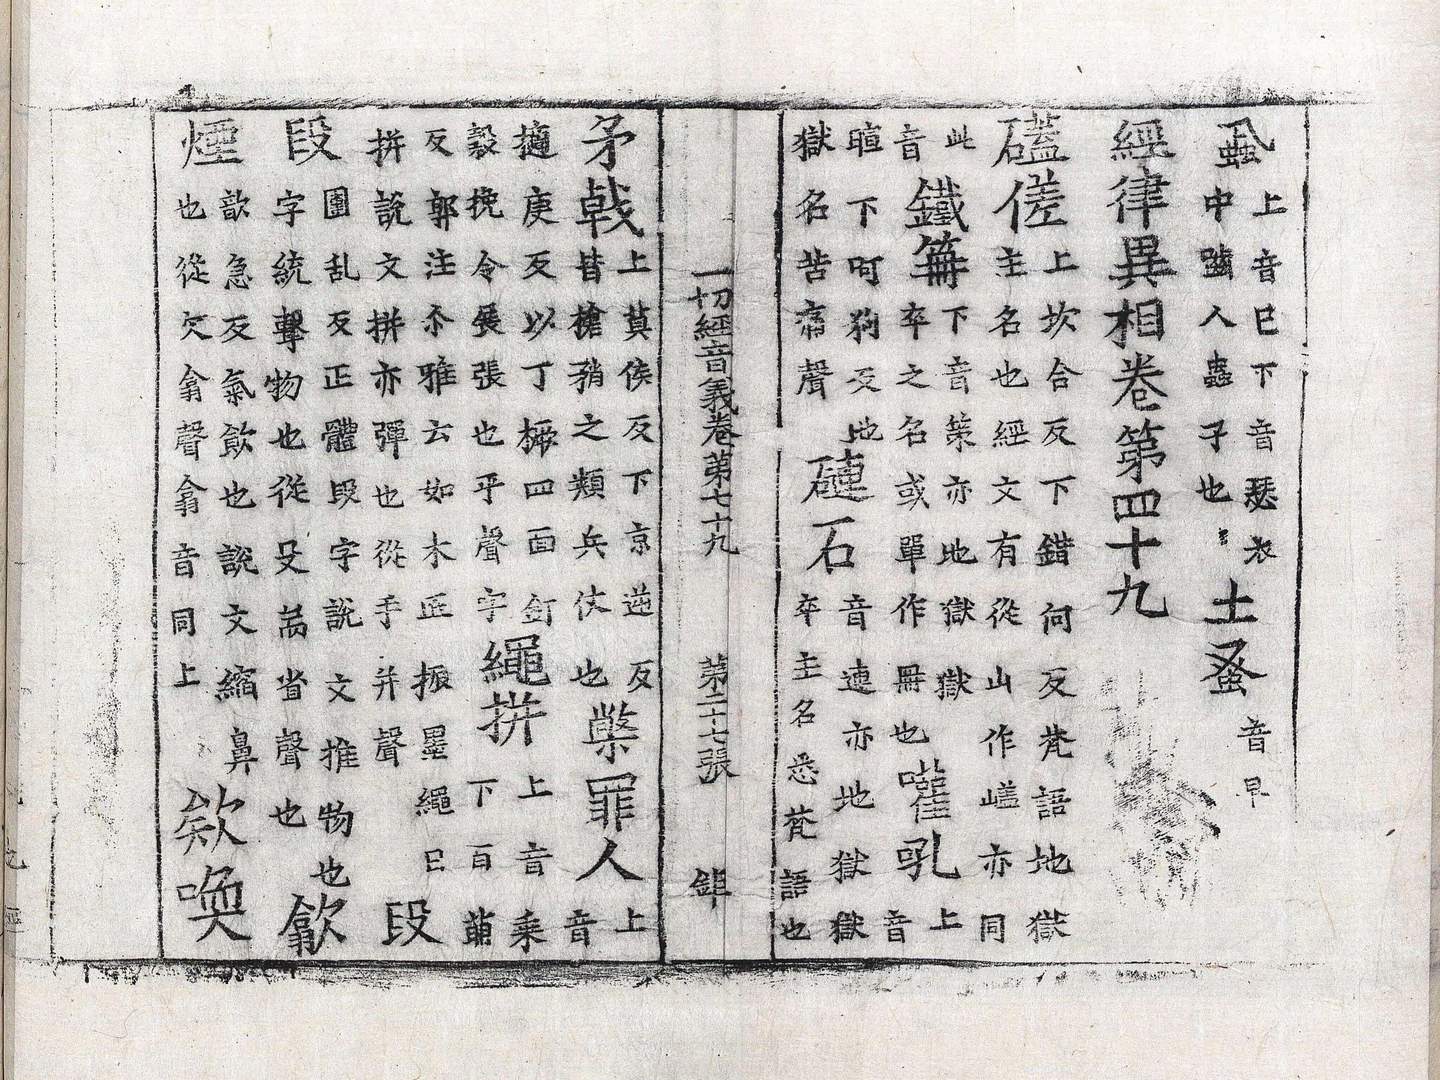 虱上音巳下音瑟衣
中齧人蟲子也土蚤音早
經律異相卷第四十九
磕傞上坎合反下錯何反梵語地獄
主名也經文有從山作嵯亦同
此鐵䇲下音策亦地獄獄
音卒之名或單作冊也嚾吼上音
暄下呴狗反地
獄名苦痛聲𥗥石音連亦地獄
卒主名悉梵語也
一切經音義卷第七十九 第二十七張 䤚
矛戟上莫侯反下京逆反
皆槍矟之類兵仗也檠罪人上音
擿庚反以丁橛四面釘繩拼上音乘
縠挽令長張也平聲字下百萠
反郭注尒雅云如木匠振墨繩曰
拼說文拼亦彈也從手并聲段
圍乱反正體毀字說文推物也
段字統擊物也從殳耑省聲也歙
歆急反氣飲也說文縮鼻
煙也從欠翕聲翕音同上欸喚